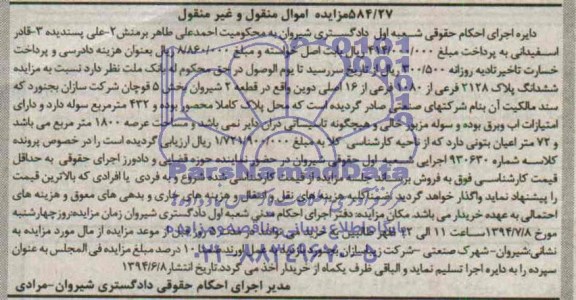 ۵۸۴/۲۷مزایده اموال منقول و غیر منقول
دایره اجرای احکام حقوقی شعبه اول دادگستری شیروان به محکومیت احمدعلی طاهر برمنش۲-علی پسندیده ۳-قادر
اسفیدانی به پرداخت مبلغ ریال بابت اصل خواسته و مبلغ ریال بعنوان هزینه دادرسی و پرداخت
خسارت تاخیر تادیه روزانه ۳۰۰/۵۰۰ ریال از تاریخ سررسید تا یوم الوصول در حق محکوم له بانک ملت نظر دارد نسبت به مزایده
ششدانگ پلاک ۲۱۲۸ فرعی از ۱۰۸۰ فرعی از ۱۶ اصلی دوین واقع در قطعه ۲ شیروان بخش ۵ قوچان شرکت سازان بجنورد که
سند مالکیت آن بنام شرکتهای صنعتی صادر گردیده است که محل پلاک کاملا محصور بوده و ۴۳۲ مترمربع سوله دارد و دارای
امتیازات اب وبرق بوده و سوله مزبور خالی و هیچگونه تاسیساتی دران دایر نمی باشد و مساحت عرصه ۱۸۰۰ متر مربع می باشد
و ۷۲ متر اعیان بتونی دارد که از ناحیه کارشناسی کلا به مبلغ ریال ارزیابی گردیده است را در خصوص پرونده
کلاسه شماره ۹۳۰۶۳۰ اجرایی شعبه اول حقوقی شیروان در حضور نماینده حوزه قضایی و دادورز اجرای حقوقی به حداقل
قیمت کارشناسی فوق به فروش برساند شروع و به فردی یا افرادی که بالاترین قیمت
را پیشنهاد نماید واگذار خواهد گردید هزینه های نقل و انتقال و هزینه های جاری و بدهی های معوق و هزینه های
احتمالی به عهده خریدار می باشد. مکان مزایده: دفتر اجرای احکام مدنی شعبه اول دادگستری شیروان زمان مزایده:روز چهارشنبه
مورخ ۱۳۹۴/۷/۸ساعت ۱۱ الی ۱۲ ظهر موعد مزایده از مال مورد مزایده به
نشانی:شیروان-شهرک صنعتی -شرکت ۱۰ درصد مبلغ مزایده فی المجلس به عنوان
سپرده را به دایره اجرا تسلیم نماید و الباقی ظرف یکماه از خریدار اخذ می گردد.تاریخ انتشار ۱۳۹۴/۶/۸
مدیر اجرای احکام حقوقی دادگستری شیروان-مرادی
ParsNamadData
۰۲۱-۸۸۳۴۹۶۷۰-۵